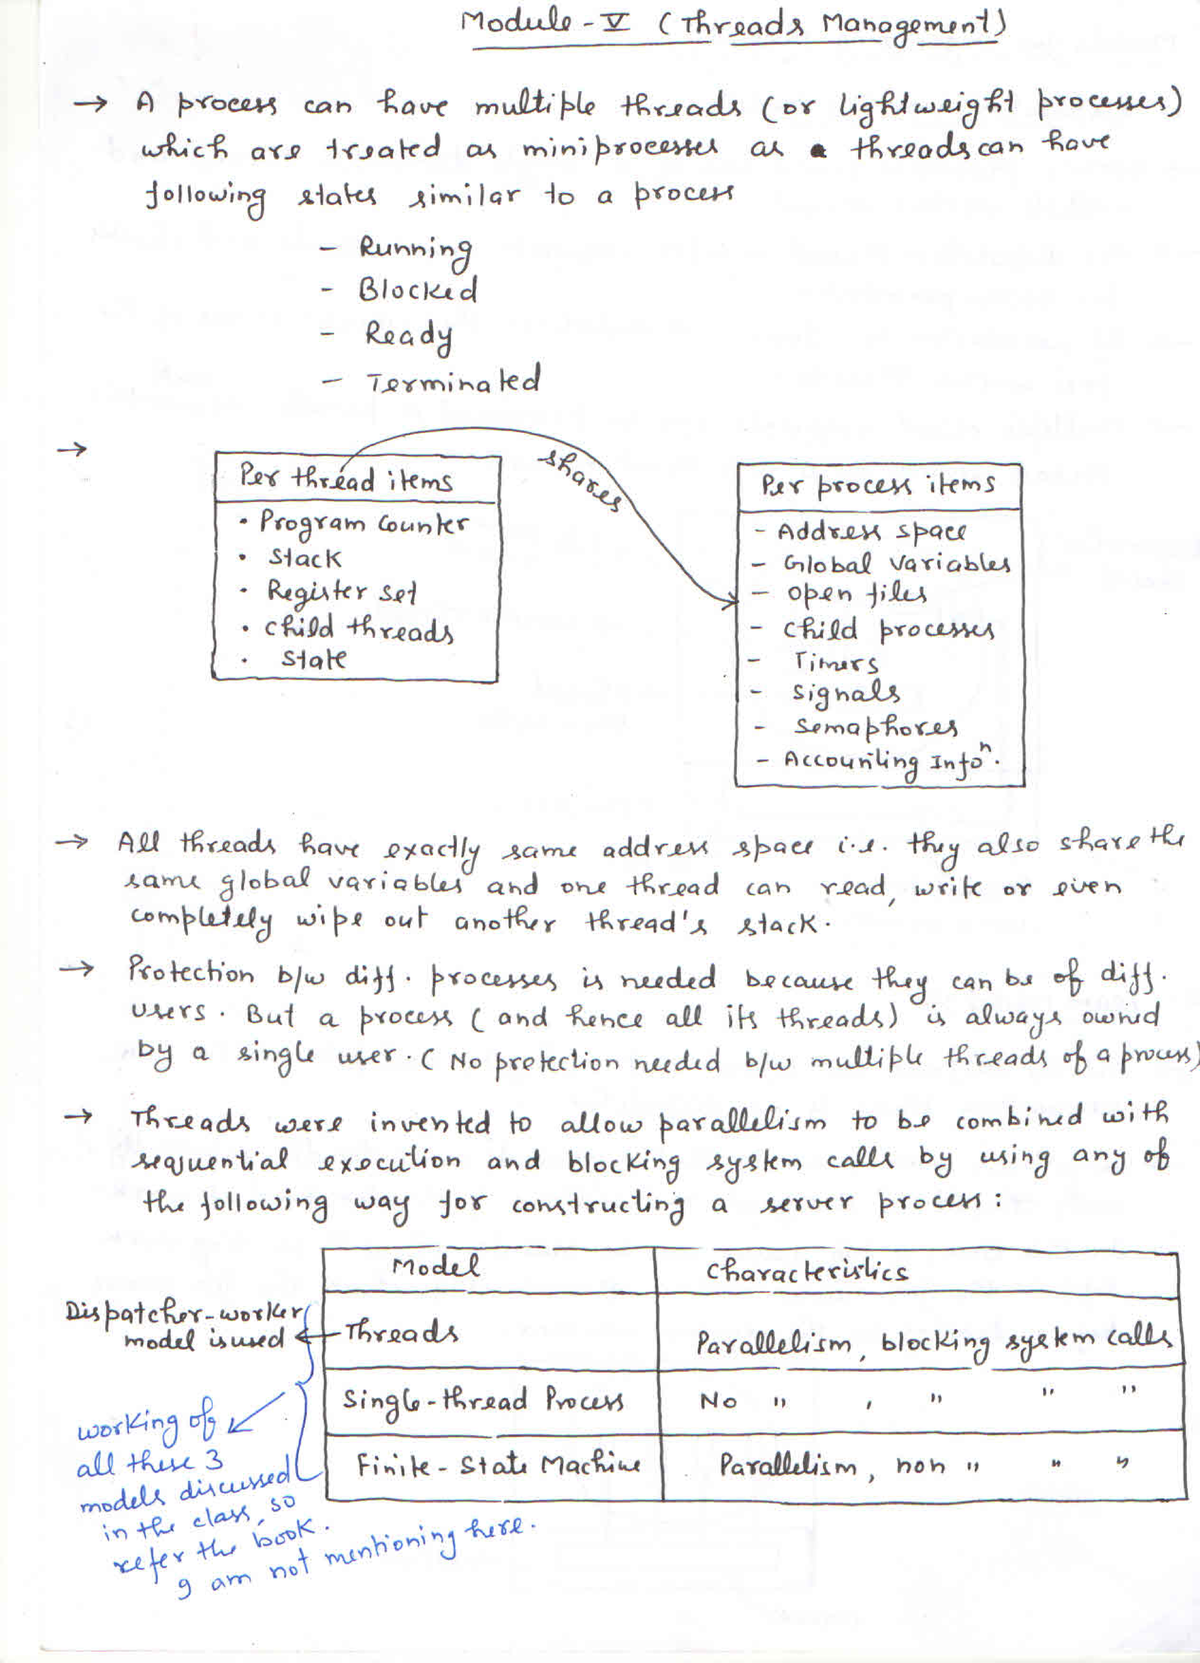 Module - V (Threads Management)
→ A process can have multiple threads (or lightweight processes)
which are treated as miniprocesses as threads can have
following states similar to a process
- Running
- Blocked
- Ready
- Terminated
→
Per thread items
• Program Counter
• Stack
• Register set
• child threads
• State
shares
Per process items
- Address space
- Global variables
- open files
- child processes
- Timers
- signals
- semaphores
- Accounting Infoⁿ.
→ All threads have exactly same address space i.e. they also share the
same global variables and one thread can read, write or even
completely wipe out another thread's stack.
→ Protection b/w diff. processes is needed because they can be of diff.
users. But a process (and hence all its threads) is always owned
by a single user. (No protection needed b/w multiple threads of a process)
→ Threads were invented to allow parallelism to be combined with
sequential execution and blocking system calls by using any of
the following way for constructing a server process:
Model Characteristics
Dispatcher-worker
model is used ← Threads Parallelism, blocking system calls
Single-thread Process No " , " " "
Finite-State Machine Parallelism, non " " "
working of
all these 3
models discussed
in the class, so
refer the book.
I am not mentioning here.